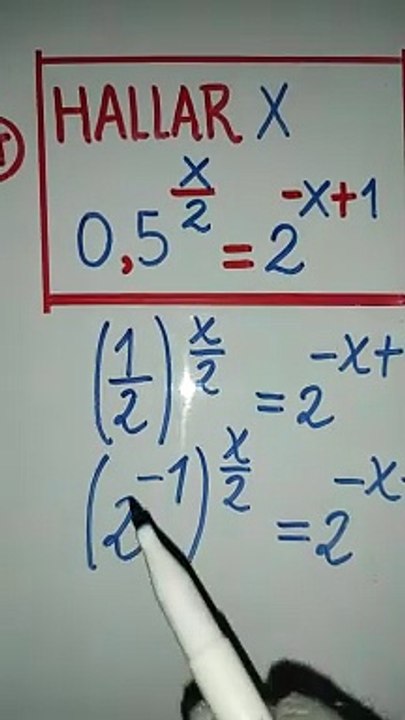 HALLAR X
0,5^(x/2) = 2^(-x+1)
(1/2)^(x/2) = 2^(-x+
(2^(-1))^(x/2) = 2^(-x